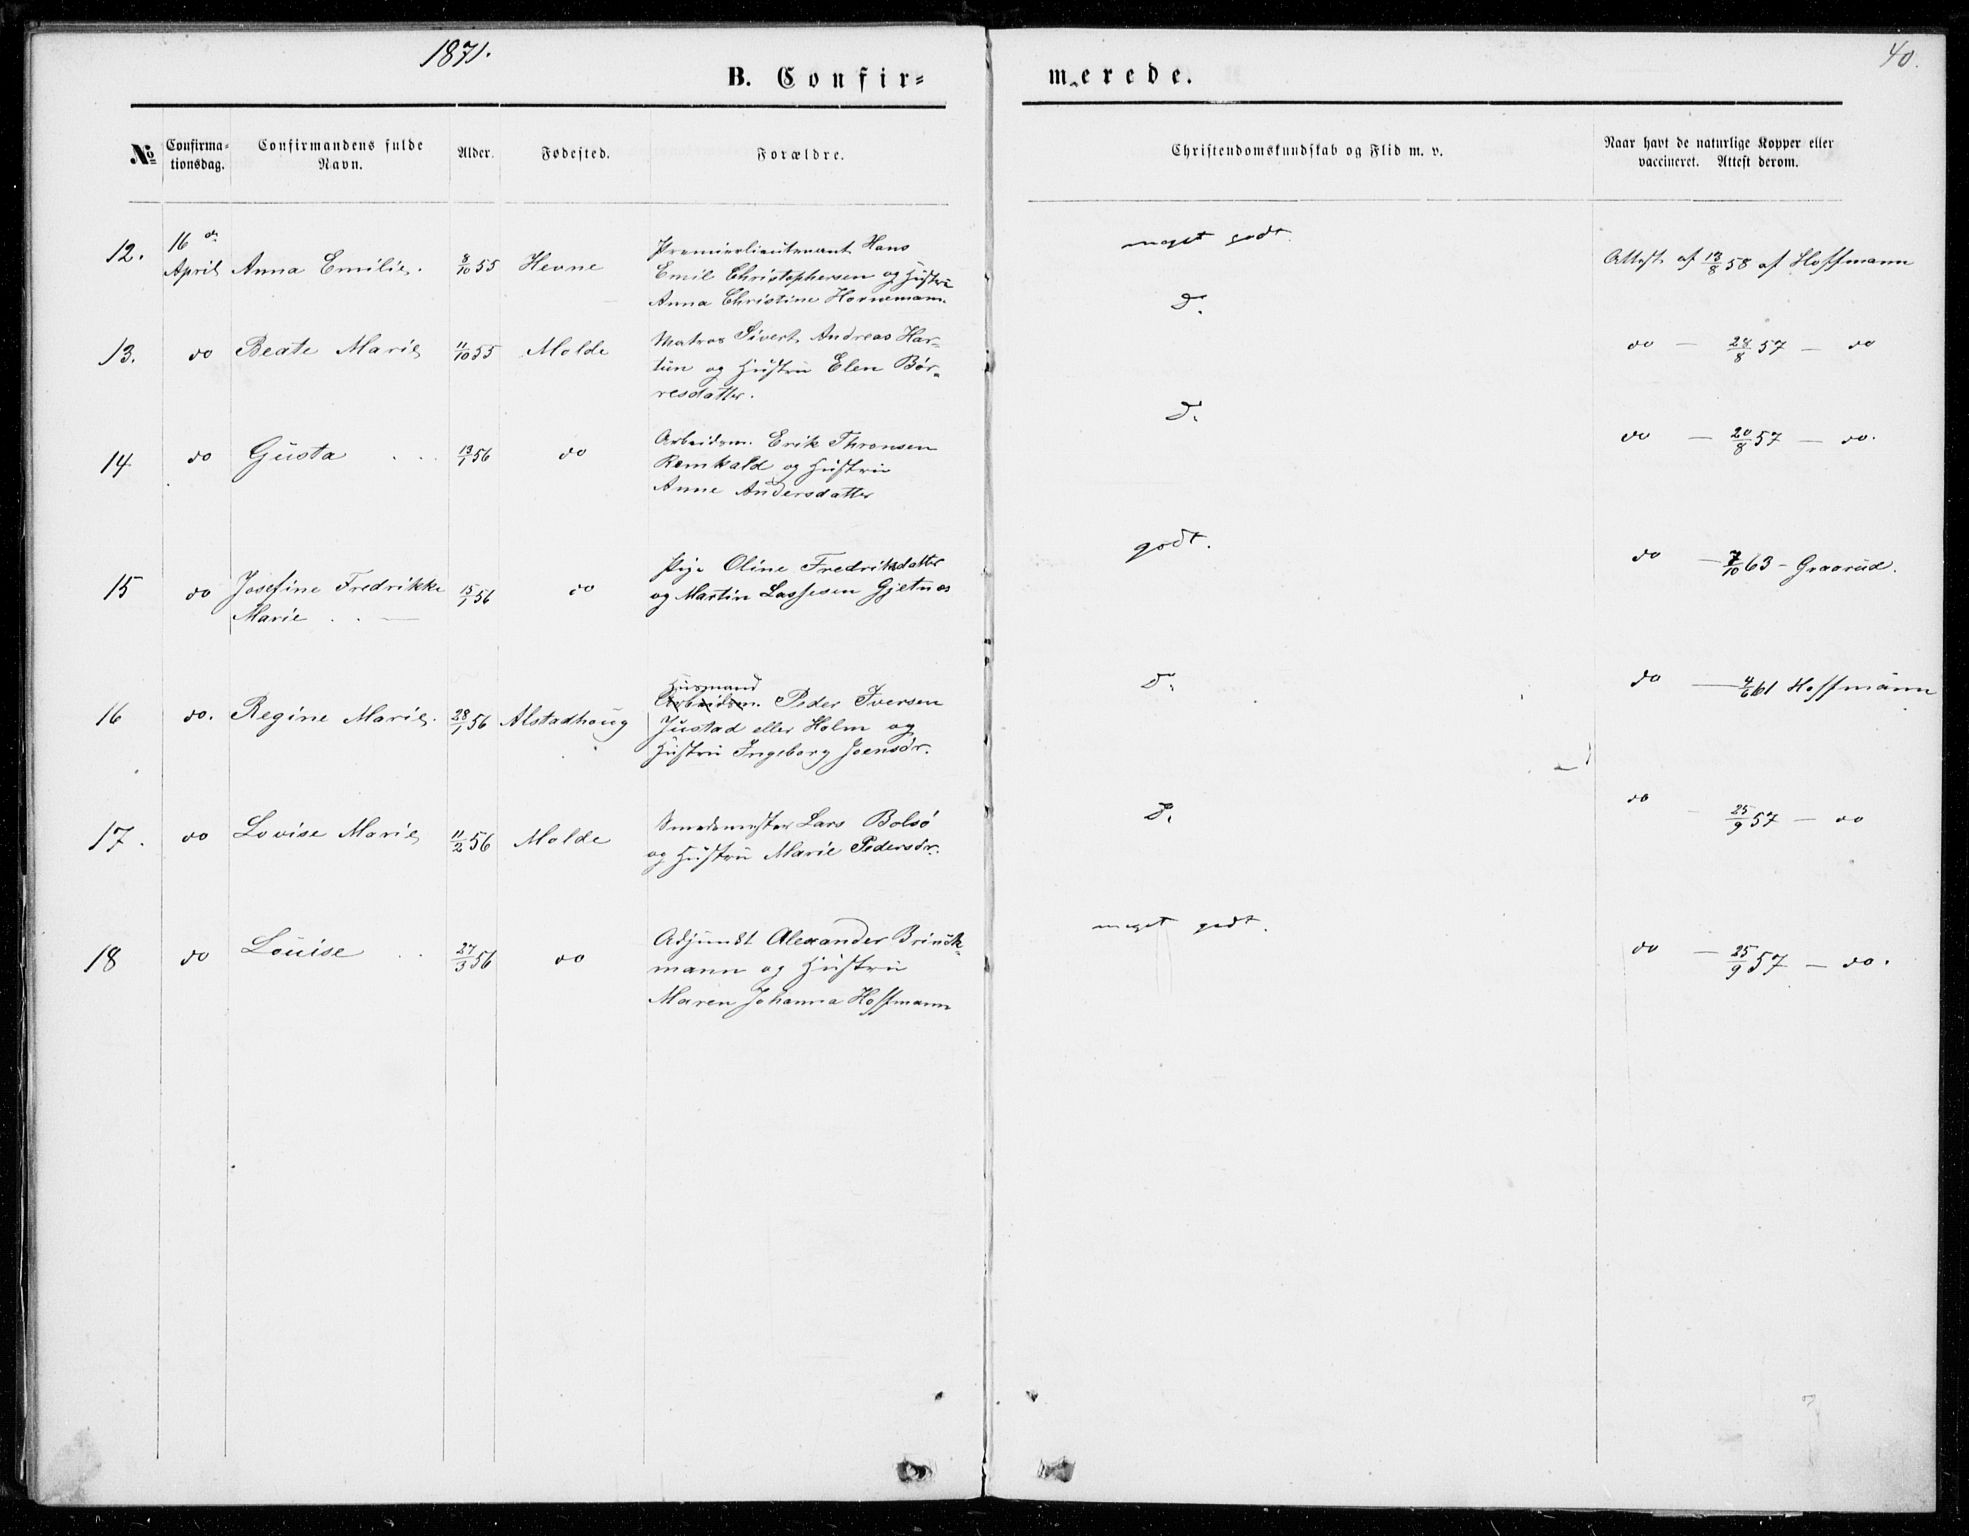 1871.
40.
B. Confir=
merede.
No
Confirma-
tionsdag.
Confirmandens fulde
Navn.
Alder.
Fødested.
Forældre.
Christendomskundskab og Flid m. v.
Naar havt de naturlige Kopper eller
vaccineret. Attest derom.
12.
16 de
April
Anna Emilie.
8/10 55
Hevne
Premierlieutenant Hans
Emil Christophersen og Hustru
Anna Christine Hornemann.
meget godt.
Attest af 18/8 58 af Hoffmann
13.
do
Beate Marie
11/10 55
Molde
Matros Sivert Andreas Har-
tun og Hustru Elen Bør-
resdatter.
D.
do — 28/8 57 — do
14
do
Gusta . . .
13/1 56
do
Arbeidsm. Erik Thronsen
Remkald og Hustru
Anne Andersdatter
D.
do — 20/8 57 — do.
15
do
Josefine Fredrikke
Marie . . —
15/1 56
do
Pige Oline Fredriksdatter
og Martin Lassesen Gjetnes
godt.
do — 7/10 63 - Graarud.
16
do.
Regine Marie.
28/1 56
Alstadhoug
Husmand
Arbeidsm. Peder Iversen
Justad eller Holm og
Hustru Ingeborg Joensdr.
D.
do — 4/6 61 Hoffmann
17.
do
Lovise Marie
11/2 56
Molde
Smedemester Lars Bolsø
og Hustru Marie Pedersdr.
D.
do — 25/9 57 — do
18
do
Louise . .
27/3 56
do
Adjunkt Alexander Brinck-
mann og Hustru
Maren Johanna Hoffmann
meget godt.
do — 25/9 57 — do.